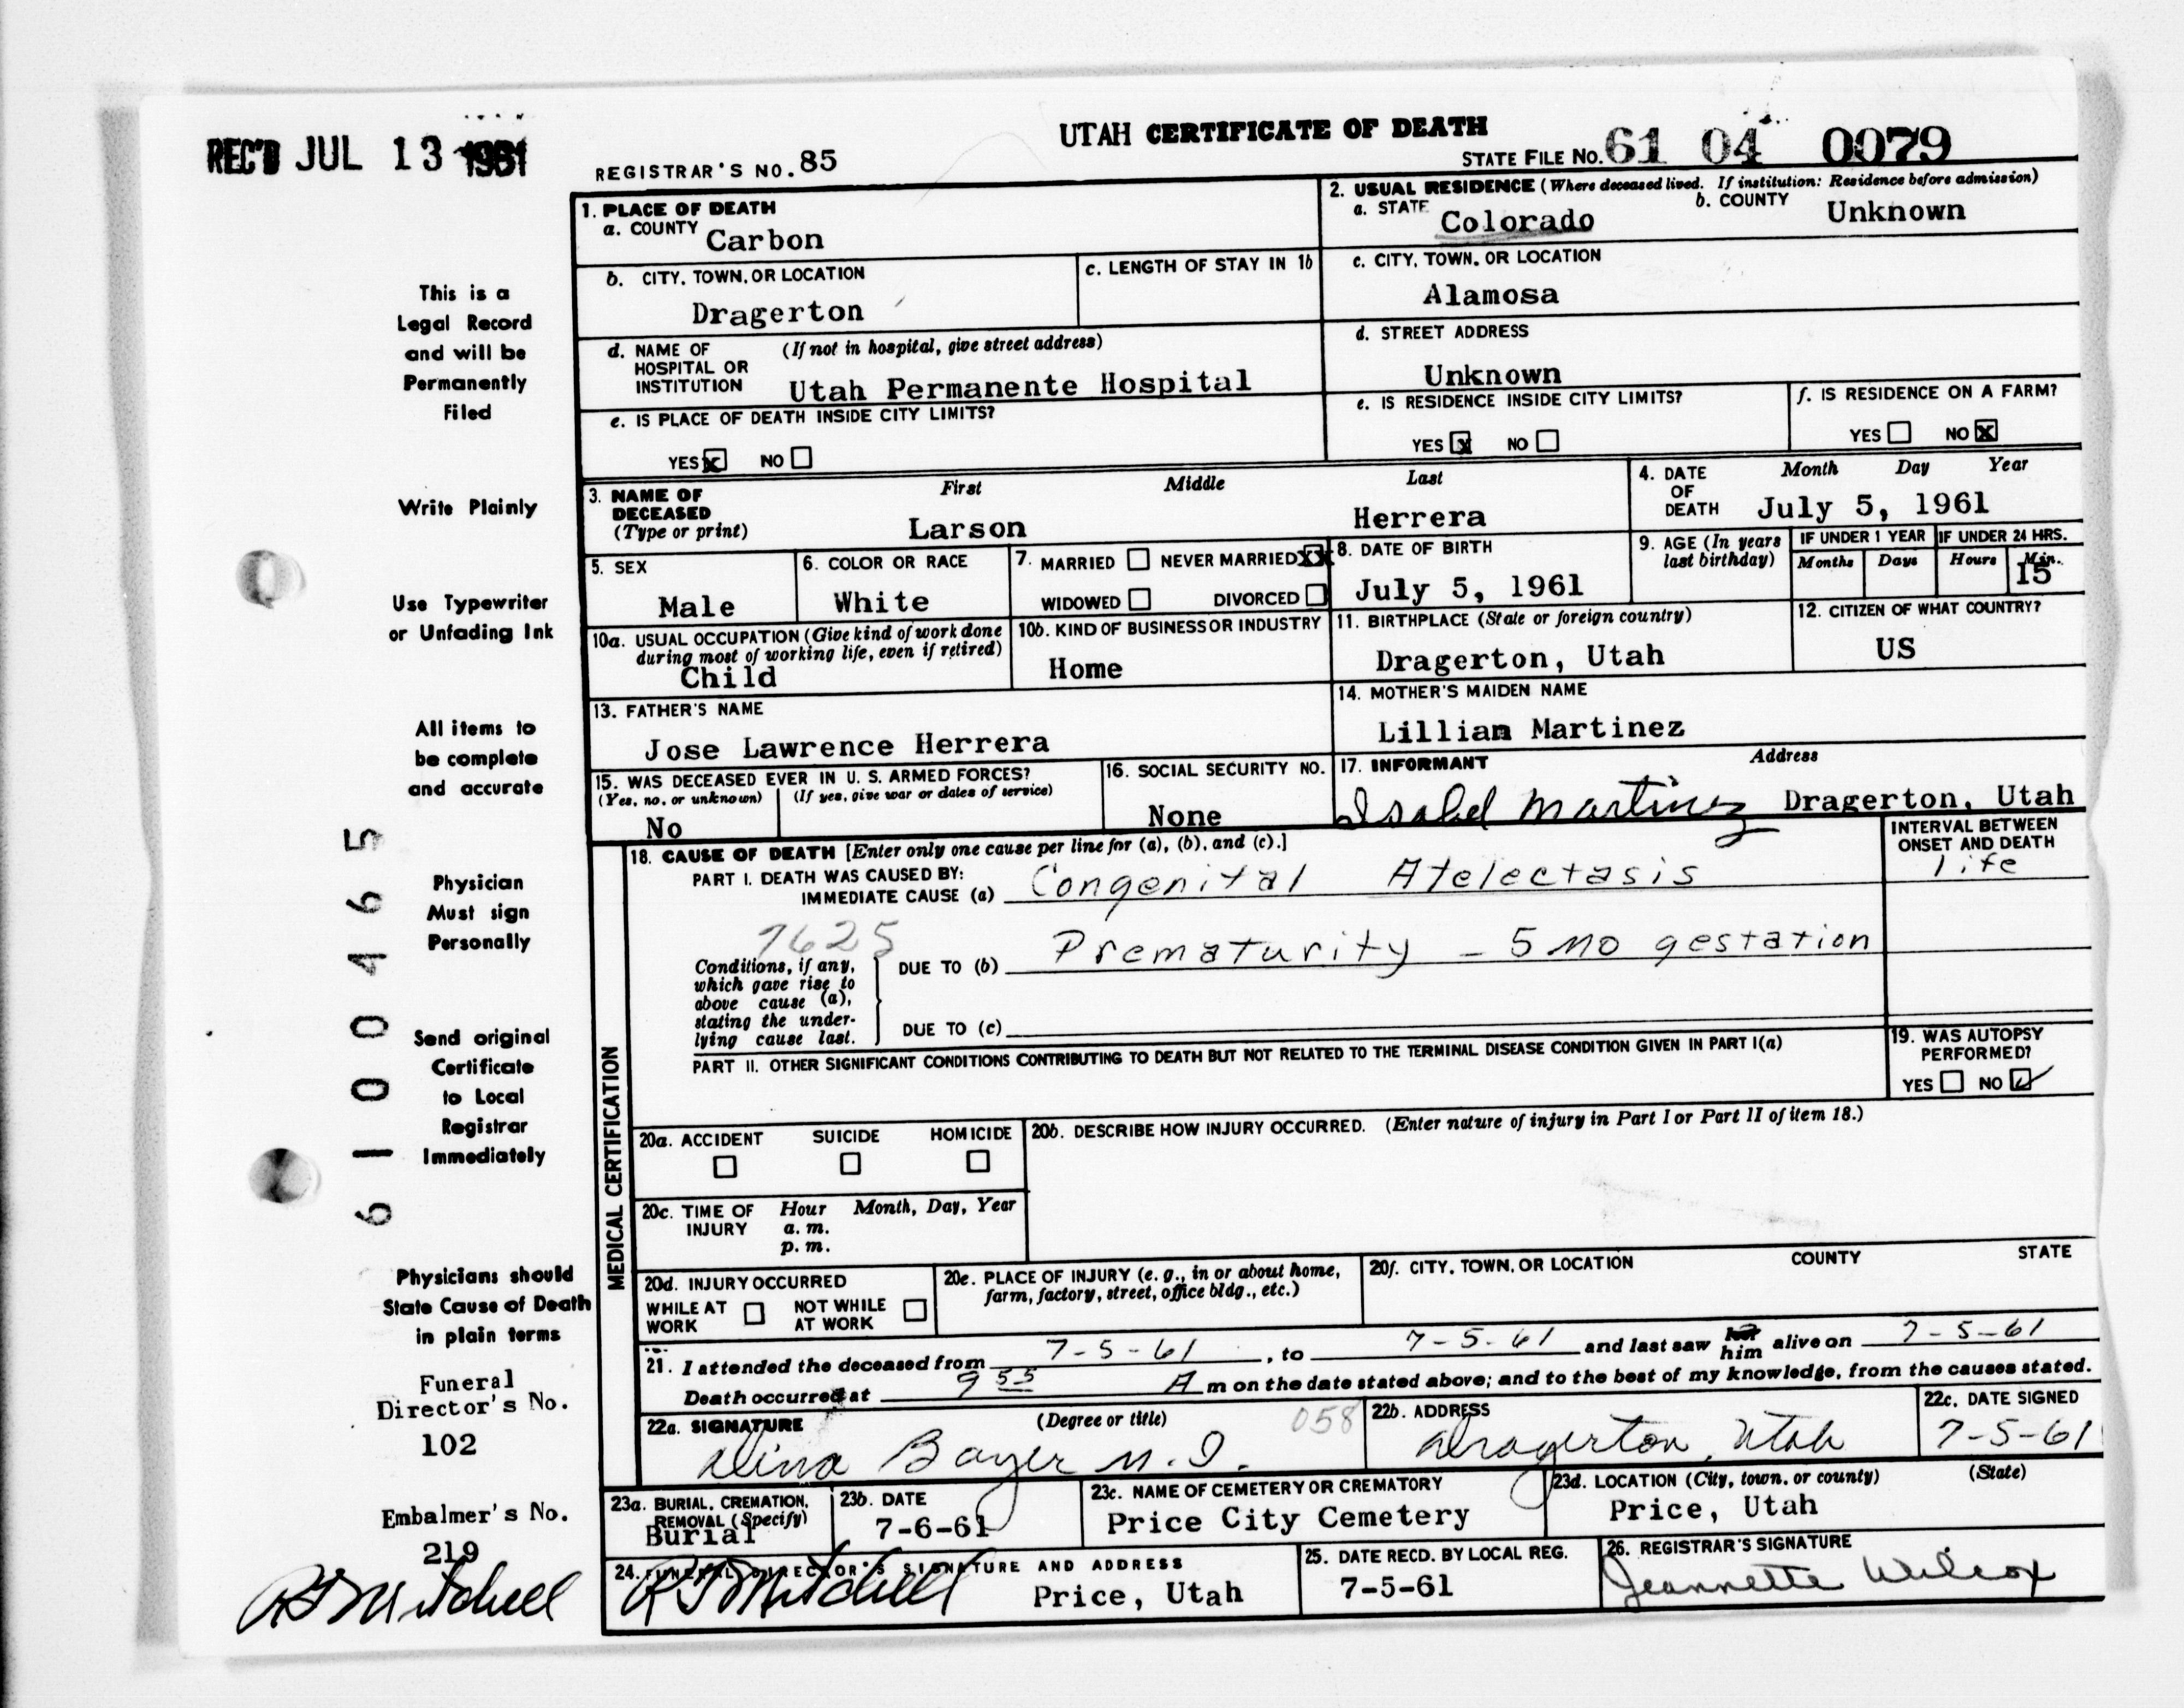 REC'D JUL 13 1961
UTAH CERTIFICATE OF DEATH
REGISTRAR'S NO. 85
STATE FILE No. 61 04 0079
1. PLACE OF DEATH
a. COUNTY Carbon
2. USUAL RESIDENCE (Where deceased lived. If institution: Residence before admission)
a. STATE Colorado b. COUNTY Unknown
b. CITY, TOWN, OR LOCATION
Dragerton
c. LENGTH OF STAY IN 1b
c. CITY, TOWN, OR LOCATION
Alamosa
d. NAME OF HOSPITAL OR INSTITUTION (If not in hospital, give street address)
Utah Permanente Hospital
d. STREET ADDRESS
Unknown
e. IS PLACE OF DEATH INSIDE CITY LIMITS?
YES X NO
e. IS RESIDENCE INSIDE CITY LIMITS?
YES X NO
f. IS RESIDENCE ON A FARM?
YES NO X
3. NAME OF DECEASED (Type or print)
First Middle Last
Larson Herrera
4. DATE OF DEATH Month Day Year
July 5, 1961
5. SEX
Male
6. COLOR OR RACE
White
7. MARRIED NEVER MARRIED XX
WIDOWED DIVORCED
8. DATE OF BIRTH
July 5, 1961
9. AGE (In years last birthday)
IF UNDER 1 YEAR IF UNDER 24 HRS.
Months Days Hours Min.
15
10a. USUAL OCCUPATION (Give kind of work done during most of working life, even if retired)
Child
10b. KIND OF BUSINESS OR INDUSTRY
Home
11. BIRTHPLACE (State or foreign country)
Dragerton, Utah
12. CITIZEN OF WHAT COUNTRY?
US
13. FATHER'S NAME
Jose Lawrence Herrera
14. MOTHER'S MAIDEN NAME
Lillian Martinez
15. WAS DECEASED EVER IN U. S. ARMED FORCES?
(Yes, no. or unknown) (If yes, give war or dates of service)
No
16. SOCIAL SECURITY NO.
None
17. INFORMANT Address
Isabel Martinez Dragerton, Utah
MEDICAL CERTIFICATION
18. CAUSE OF DEATH [Enter only one cause per line for (a), (b), and (c).]
INTERVAL BETWEEN ONSET AND DEATH
PART I. DEATH WAS CAUSED BY:
IMMEDIATE CAUSE (a) Congenital Atelectasis life
7625
Conditions, if any, which gave rise to above cause (a), stating the underlying cause last.
DUE TO (b) Prematurity - 5 mo gestation
DUE TO (c)
PART II. OTHER SIGNIFICANT CONDITIONS CONTRIBUTING TO DEATH BUT NOT RELATED TO THE TERMINAL DISEASE CONDITION GIVEN IN PART I(a)
19. WAS AUTOPSY PERFORMED?
YES NO ✓
20a. ACCIDENT SUICIDE HOMICIDE
20b. DESCRIBE HOW INJURY OCCURRED. (Enter nature of injury in Part I or Part II of item 18.)
20c. TIME OF INJURY Hour Month, Day, Year
a. m.
p. m.
20d. INJURY OCCURRED
WHILE AT WORK NOT WHILE AT WORK
20e. PLACE OF INJURY (e. g., in or about home, farm, factory, street, office bldg., etc.)
20f. CITY, TOWN, OR LOCATION COUNTY STATE
21. I attended the deceased from 7-5-61, to 7-5-61 and last saw her him alive on 7-5-61
Death occurred at 9 55 A m on the date stated above; and to the best of my knowledge, from the causes stated.
22a. SIGNATURE (Degree or title) 058
Dina Bayer M.D.
22b. ADDRESS
Dragerton, Utah
22c. DATE SIGNED
7-5-61
23a. BURIAL, CREMATION, REMOVAL (Specify)
Burial
23b. DATE
7-6-61
23c. NAME OF CEMETERY OR CREMATORY
Price City Cemetery
23d. LOCATION (City, town, or county) (State)
Price, Utah
24. FUNERAL DIRECTOR'S SIGNATURE AND ADDRESS
R J Mitchell Price, Utah
25. DATE RECD. BY LOCAL REG.
7-5-61
26. REGISTRAR'S SIGNATURE
Jeannette Wilcox
This is a
Legal Record
and will be
Permanently
Filed
Write Plainly
Use Typewriter
or Unfading Ink
All items to
be complete
and accurate
Physician
Must sign
Personally
Send original
Certificate
to Local
Registrar
Immediately
Physicians should
State Cause of Death
in plain terms
Funeral
Director's No.
102
Embalmer's No.
219
R J Mitchell
6100465